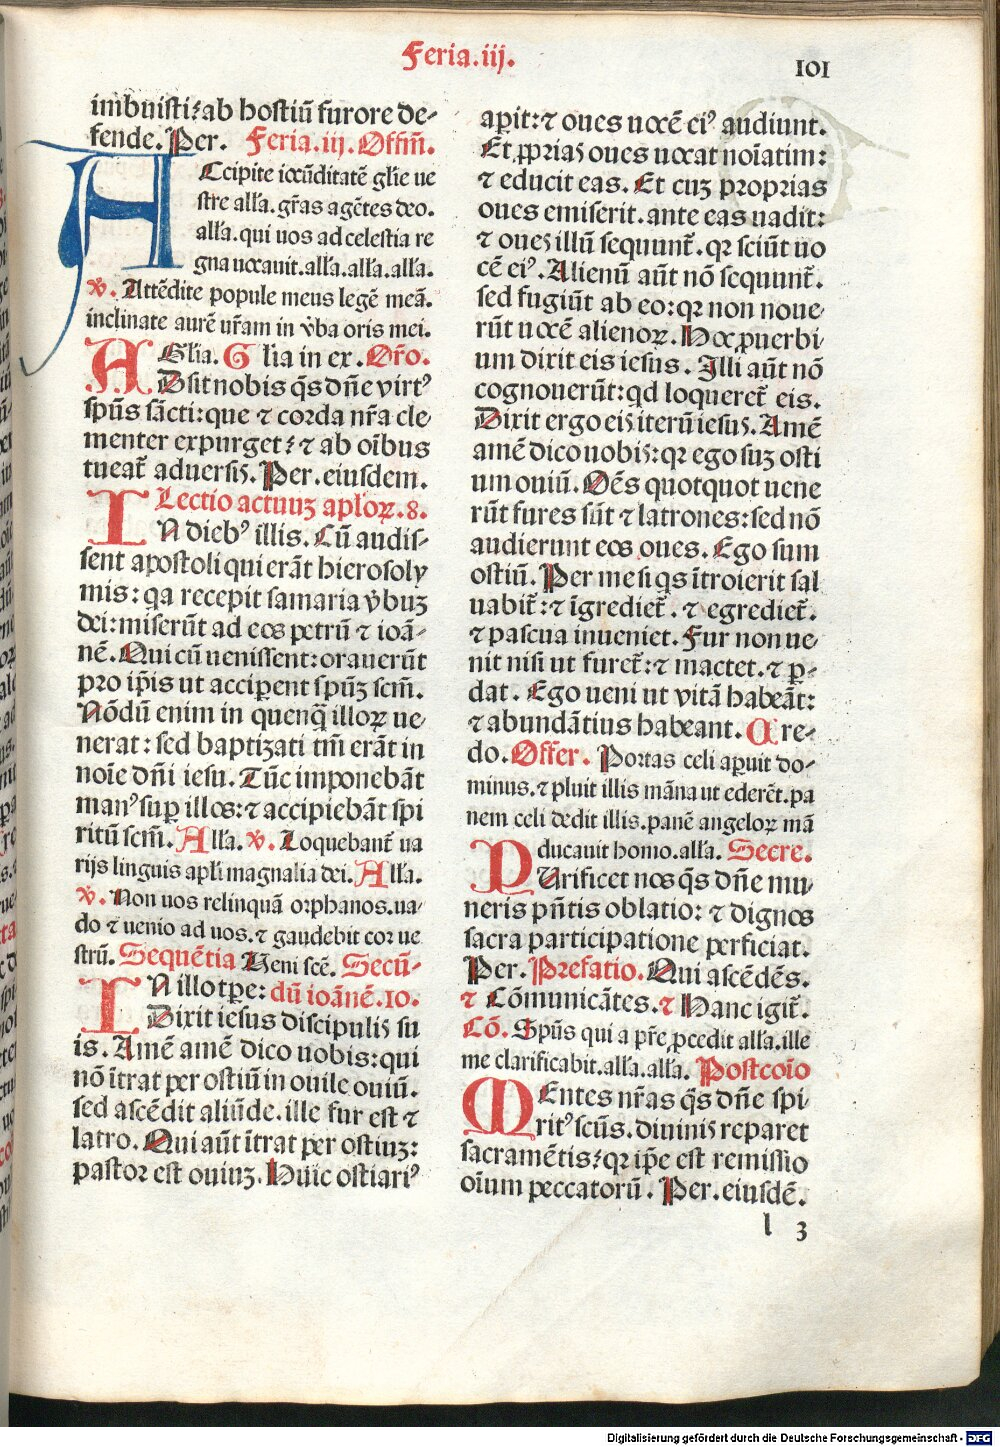 Feria.iij.
101
imbuisti:ab hostiū furore de-
fende. Per. Feria.iij. Offm̄.
ACcipite iocūditatē gl'ie ue
stre all'a. gr̄as agētes deo.
all'a. qui uos ad celestia re
gna uocauit. all'a. all'a. all'a.
℣. Attēdite popule meus legē meā.
inclinate aurē ur̄am in v̄ba oris mei.
Gl'ia. Gl'ia in ex. Or̄o.
ADsit nobis q̄s dn̄e virtꝰ
sp̄us sācti: que ⁊ corda nr̄a cle
menter expurget: ⁊ ab oībus
tueat̄ aduersis. Per. eiusdem.
Lectio actuuꝫ apl'oꝝ. 8.
IN diebꝰ illis. Cū audis-
sent apostoli qui erāt hierosoly
mis: qa recepit samaria v̄buꝫ
dei: miserūt ad eos petrū ⁊ ioā-
nē. Qui cū uenissent: orauerūt
pro ip̄is ut acciperent sp̄uꝫ scm̄.
Nōdū enim in quenq̄ illoꝝ ue-
nerat: sed baptizati tm̄ erāt in
noīe dn̄i iesu. Tūc imponebāt
manꝰ suꝑ illos: ⁊ accipiebāt spi
ritū scm̄. All'a. ℣. Loquebant̄ ua
rijs linguis apl'i magnalia dei. All'a.
℣. Non uos relinquā orphanos. ua-
do ⁊ uenio ad uos. ⁊ gaudebit cor ue
strū. Sequētia Ueni scē. Secū-
IN illo tp̄e: dū ioānē. 10.
Dixit iesus discipulis su
is. Amē amē dico uobis: qui
nō ītrat per ostiū in ouile ouiū.
sed ascēdit aliūde. ille fur est ⁊
latro. Qui aūt ītrat per ostiuꝫ:
pastor est ouiuꝫ. Huic ostiariꝰ
aꝑit: ⁊ oues uocē eiꝰ audiunt.
Et ꝓprias oues uocat noīatim:
⁊ educit eas. Et cuꝫ proprias
oues emiserit. ante eas uadit:
⁊ oues illū sequunt̄. qꝛ sciūt uo
cē eiꝰ. Alienū aūt nō sequunt̄.
sed fugiūt ab eo: qꝛ non noue-
rūt uocē alienoꝝ. Hoc ꝓuerbi-
um dixit eis iesus. Illi aūt nō
cognouerūt: qd loqueret̄ eis.
Dixit ergo eis iterū iesus. Amē
amē dico uobis: qꝛ ego suꝫ osti
um ouiū. Oēs quotquot uene
rūt fures sūt ⁊ latrones: sed nō
audierunt eos oues. Ego sum
ostiū. Per me si q̄s ītroierit sal
uabit̄: ⁊ īgrediet̄. ⁊ egrediet̄.
⁊ pascua inueniet. Fur non ue-
nit nisi ut furet̄: ⁊ mactet. ⁊ ꝑ-
dat. Ego ueni ut vitā habeāt:
⁊ abundātius habeant. Cre-
do. Offer. Portas celi aꝑuit do-
minus. ⁊ pluit illis māna ut ederēt. pa
nem celi dedit illis. panē angeloꝝ mā
ducauit homo. all'a. Secre.
PUrificet nos q̄s dn̄e mu-
neris pn̄tis oblatio: ⁊ dignos
sacra participatione perficiat.
Per. Prefatio. Qui ascēdēs.
⁊ Cōmunicātes. ⁊ Hanc igit̄.
Cō. Sp̄us qui a pr̄e ꝓcedit all'a. ille
me clarificabit. all'a. all'a. Postcoīo
MEntes nr̄as q̄s dn̄e spi-
ritꝰ scūs. diuinis reparet
sacramētis: qꝛ ip̄e est remissio
oīum peccatorū. Per. eiusdē.
l 3
Digitalisierung gefördert durch die Deutsche Forschungsgemeinschaft - DFG